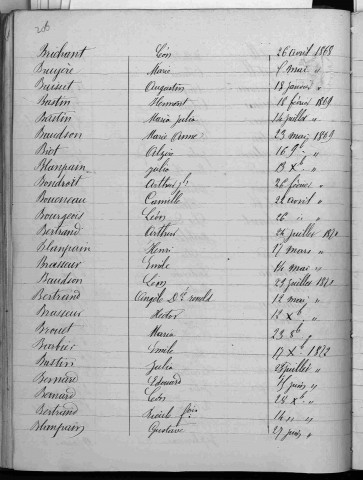 Brichant Léon 26 avril 1868
Bruyère Marie 5 mai "
Augustin 18 janvier "
Bastin Clément 18 février 1869
Bastin Maria Julia 14 juillet "
Baudson Marie Anne 23 mai 1869
Biot Alzire 16 9e "
Blanpain Julia 13 Xb "
Bondroit Arthur 26 février "
Bouesseau Camille 22 avril "
Bourgeois Léon 26 " "
Bertrand Arthur 24 juillet 1870
Blanpain Henri 17 mars "
Brasseur Emile 14 mai "
Baudson Léon 29 juillet 1870
Bertrand Angèle 12 mai "
Brasseur Hector 12 Xb "
Brouet Maria 23 8b "
Barbier Emile 17 Xb 1872
Bastin Julia 28 juillet "
Bernard Edouard 15 juin "
Bernard Léon 28 Xb "
Bertrand 14 " "
Blanpain Gustave 27 juin "